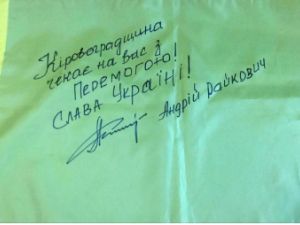 Кіровоградщина
чекає на Вас з
Перемогою!
Слава Україні!
Андрій Райкович